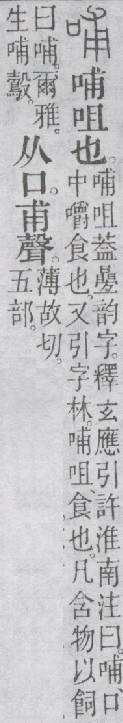 哺哺咀也。哺咀葢㬪韵字。釋玄應引許淮南注曰。哺、口
中嚼食也。又引字林。哺咀、食也。凡含物以飼
曰哺。爾雅。
生哺鷇。从口。甫聲。薄故切。
五部。